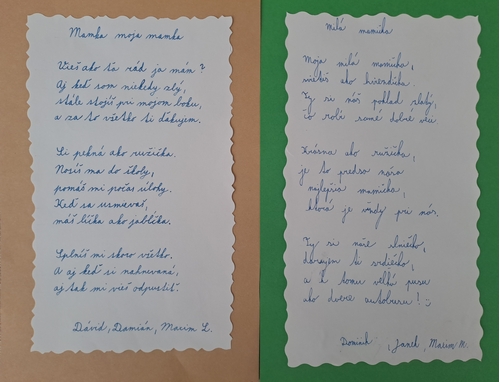 Mamka moja mamka
Vieš ako ťa rád ja mám?
Aj keď som niekedy zlý,
stále stojíš pri mojom boku,
a za to všetko ti ďakujem.
Si pekná ako ružička.
Nosíš ma do školy,
pomáš mi počas úlohy.
Keď sa usmievaš,
máš líčka ako jabĺčka.
Splníš mi skoro všetko.
A aj keď si nahnevaná,
aj tak mi vieš odpustiť.
Dávid, Damián, Maxim L.
Milá mamička
Moja milá mamička,
ako hviezdička.
Ty si náš poklad zlatý,
čo robí samé dobré veci.
Krásna ako ružička,
je to predsa naša
najlepšia mamička,
ktorá je vždy pri nás.
Ty si naše slniečko,
darujem ti srdiečko,
a k tomu veľkú pusu
ako dvere autobusu! :)
Dominik, Janek, Maxim M.